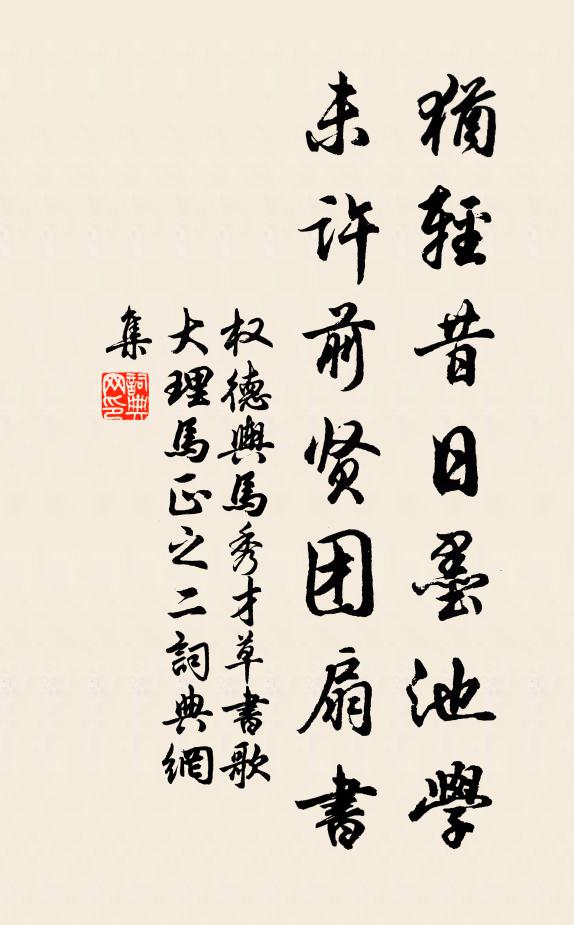 猶輕昔日墨池學
未许前贤团扇書
权德輿馬秀才草書歌
大理馬正之二詞典網
集
詞典网印